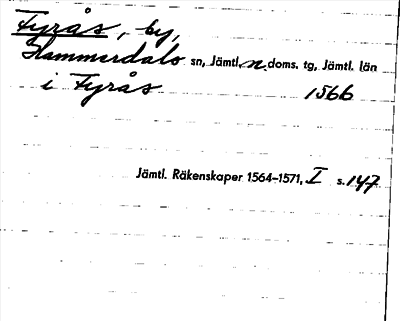 Fyrås, by,
Hammerdals sn, Jämtl. n. doms. tg, Jämtl. län
i Fyrås 1566
Jämtl. Räkenskaper 1564–1571, I s. 147